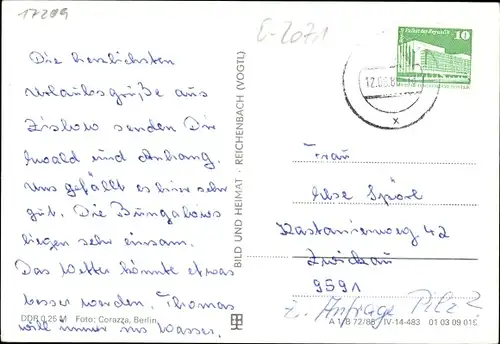 17209
E-2071
Die herzlichsten
Urlaubsgrüße aus
Zislow senden Dir
Ewald und Anhang.
Uns gefällt es hier sehr
gut. Die Bungalows
liegen sehr einsam.
Das Wetter könnte etwas
besser werden. Thomas
will immer ins Wasser.
DDR 0,25 M Foto: Corazza, Berlin
BILD UND HEIMAT · REICHENBACH (VOGTL)
Palast der Republik
10
12.08.86
x
Frau
Ilse Spörl
Kastanienweg 42
Zwickau
9591
z. Anfrage Pilz?
A 1/B 72/86 IV-14-483 01 03 09 015